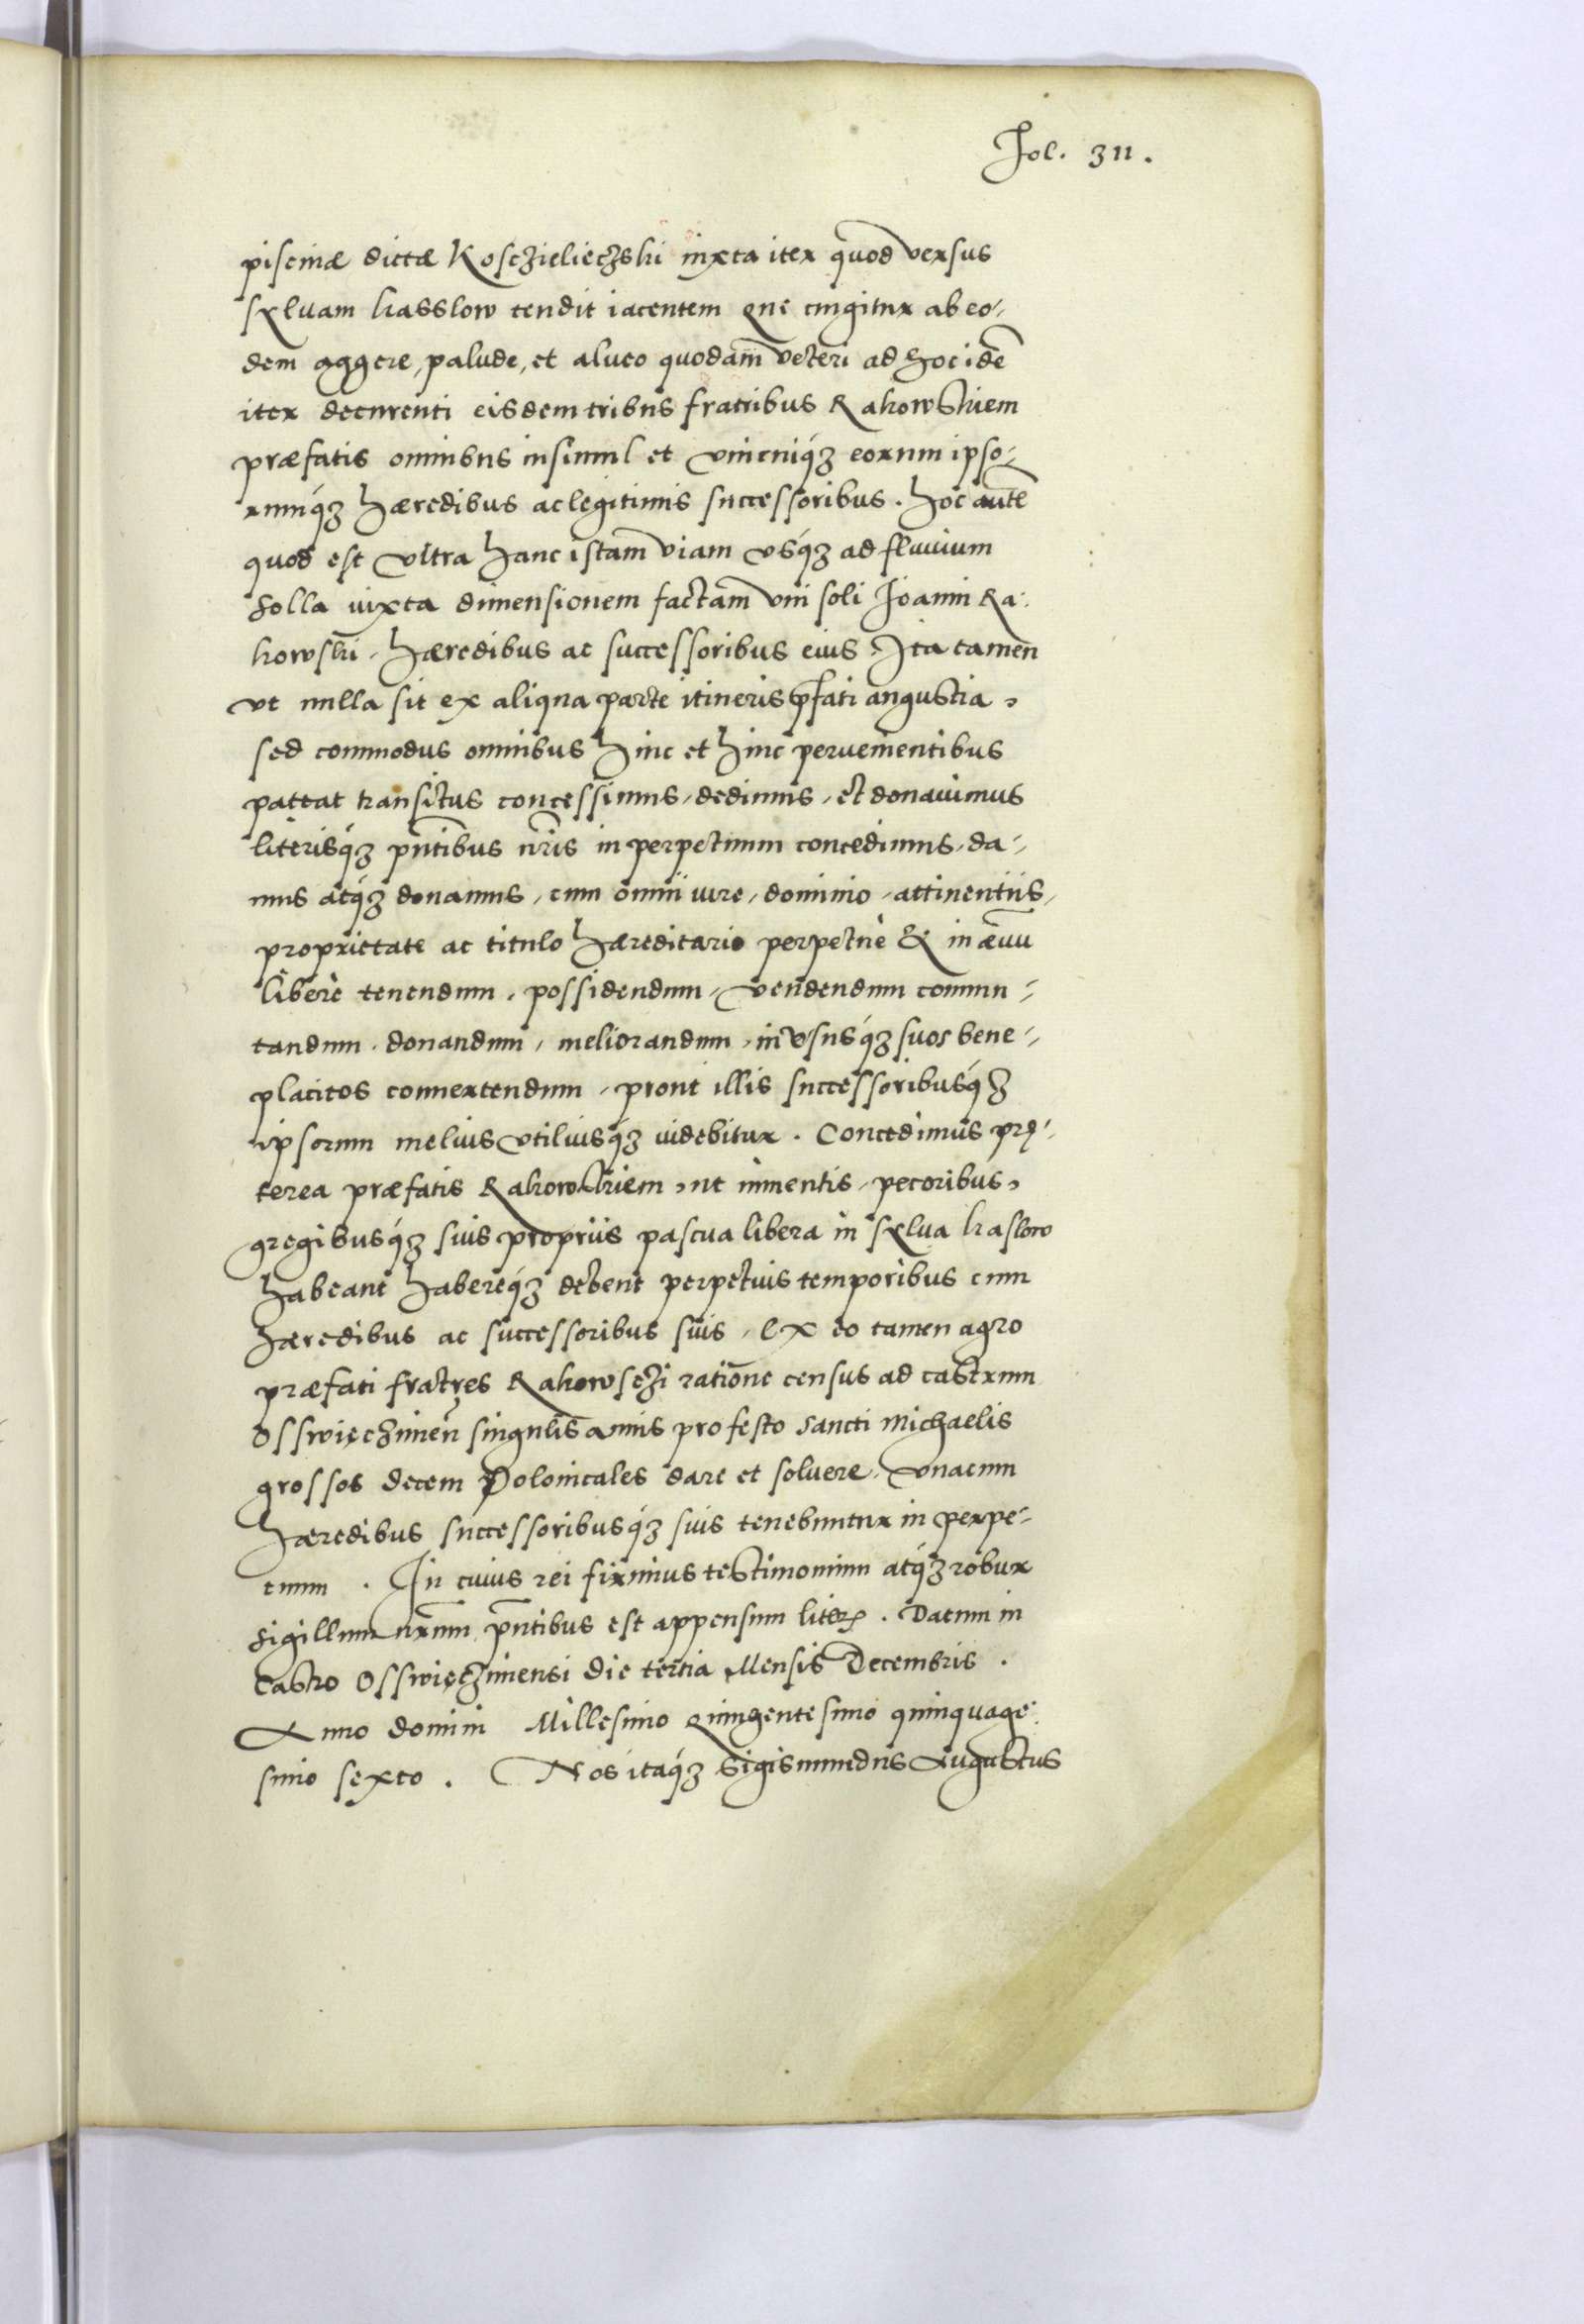 Fol. 311.
piscinæ dictæ Koschieliechski iuxta iter quod versus
syluam Kasslow tendit iacentem que cingitur ab eo-
dem aggere, palude, et alueo quodam̄ veteri ad hoc idē
iter decurenti eisdem tribus fratribus Rakowskiem
præfatis omnibus insimul et vnicuiqʒ eorum ipso-
rumqʒ hæredibus ac legitimis successoribus. hoc autē
quod est vltra hanc istam̄ viam vsqʒ ad fluuium
Solla iuxta dimensionem factam̄ vni soli Joanni Ra-
kowski, hæredibus ac successoribus eius. Ita tamen
vt nulla sit ex aliqua parte itineris p̄fati angustia,
sed commodus omnibus hinc et hinc peruenientibus
pateat transitus concessimus, dedimus, et donauimus
literisqʒ pn̄tibus nr̄is in perpetuum concedimus, da-
mus atqʒ donamus, cum omni iure, dominio, attinentiis,
proprietate ac titulo hæreditario perpetuè & in æuū
liberè tenendum, possidendum, vendendum commu-
tandum, donandum, meliorandum, in vsusqʒ suos bene-
placitos conuertendum, prout illis successoribusqʒ
ipsorum melius vtiliusqʒ uidebitur. Concedimus prę-
terea præfatis Rakowskiem, ut iumentis, pecoribus,
gregibusqʒ suis propriis pascua libera in sylua Kaslow
habeant habereqʒ debent perpetuis temporibus cum
hæredibus ac successoribus suis, Ex eo tamen agro
præfati fratres Rakowschi ratione census ad castrum
Osswięchimen̄ singulis annis pro festo Sancti Michaelis
grossos decem Polonicales dare et soluere, vnacum
hæredibus successoribusqʒ suis tenebuntur in perpe-
tuum. In cuius rei firmius testimonium atqʒ robur
sigillum nr̄um pn̄tibus est appensum literꝭ. Datum in
Castro Osswięchimensi die tertia Mensis Decembris.
Anno domini Millesimo Quingentesimo quinquage-
simo sexto. Nos itaqʒ Sigismundus Augustus